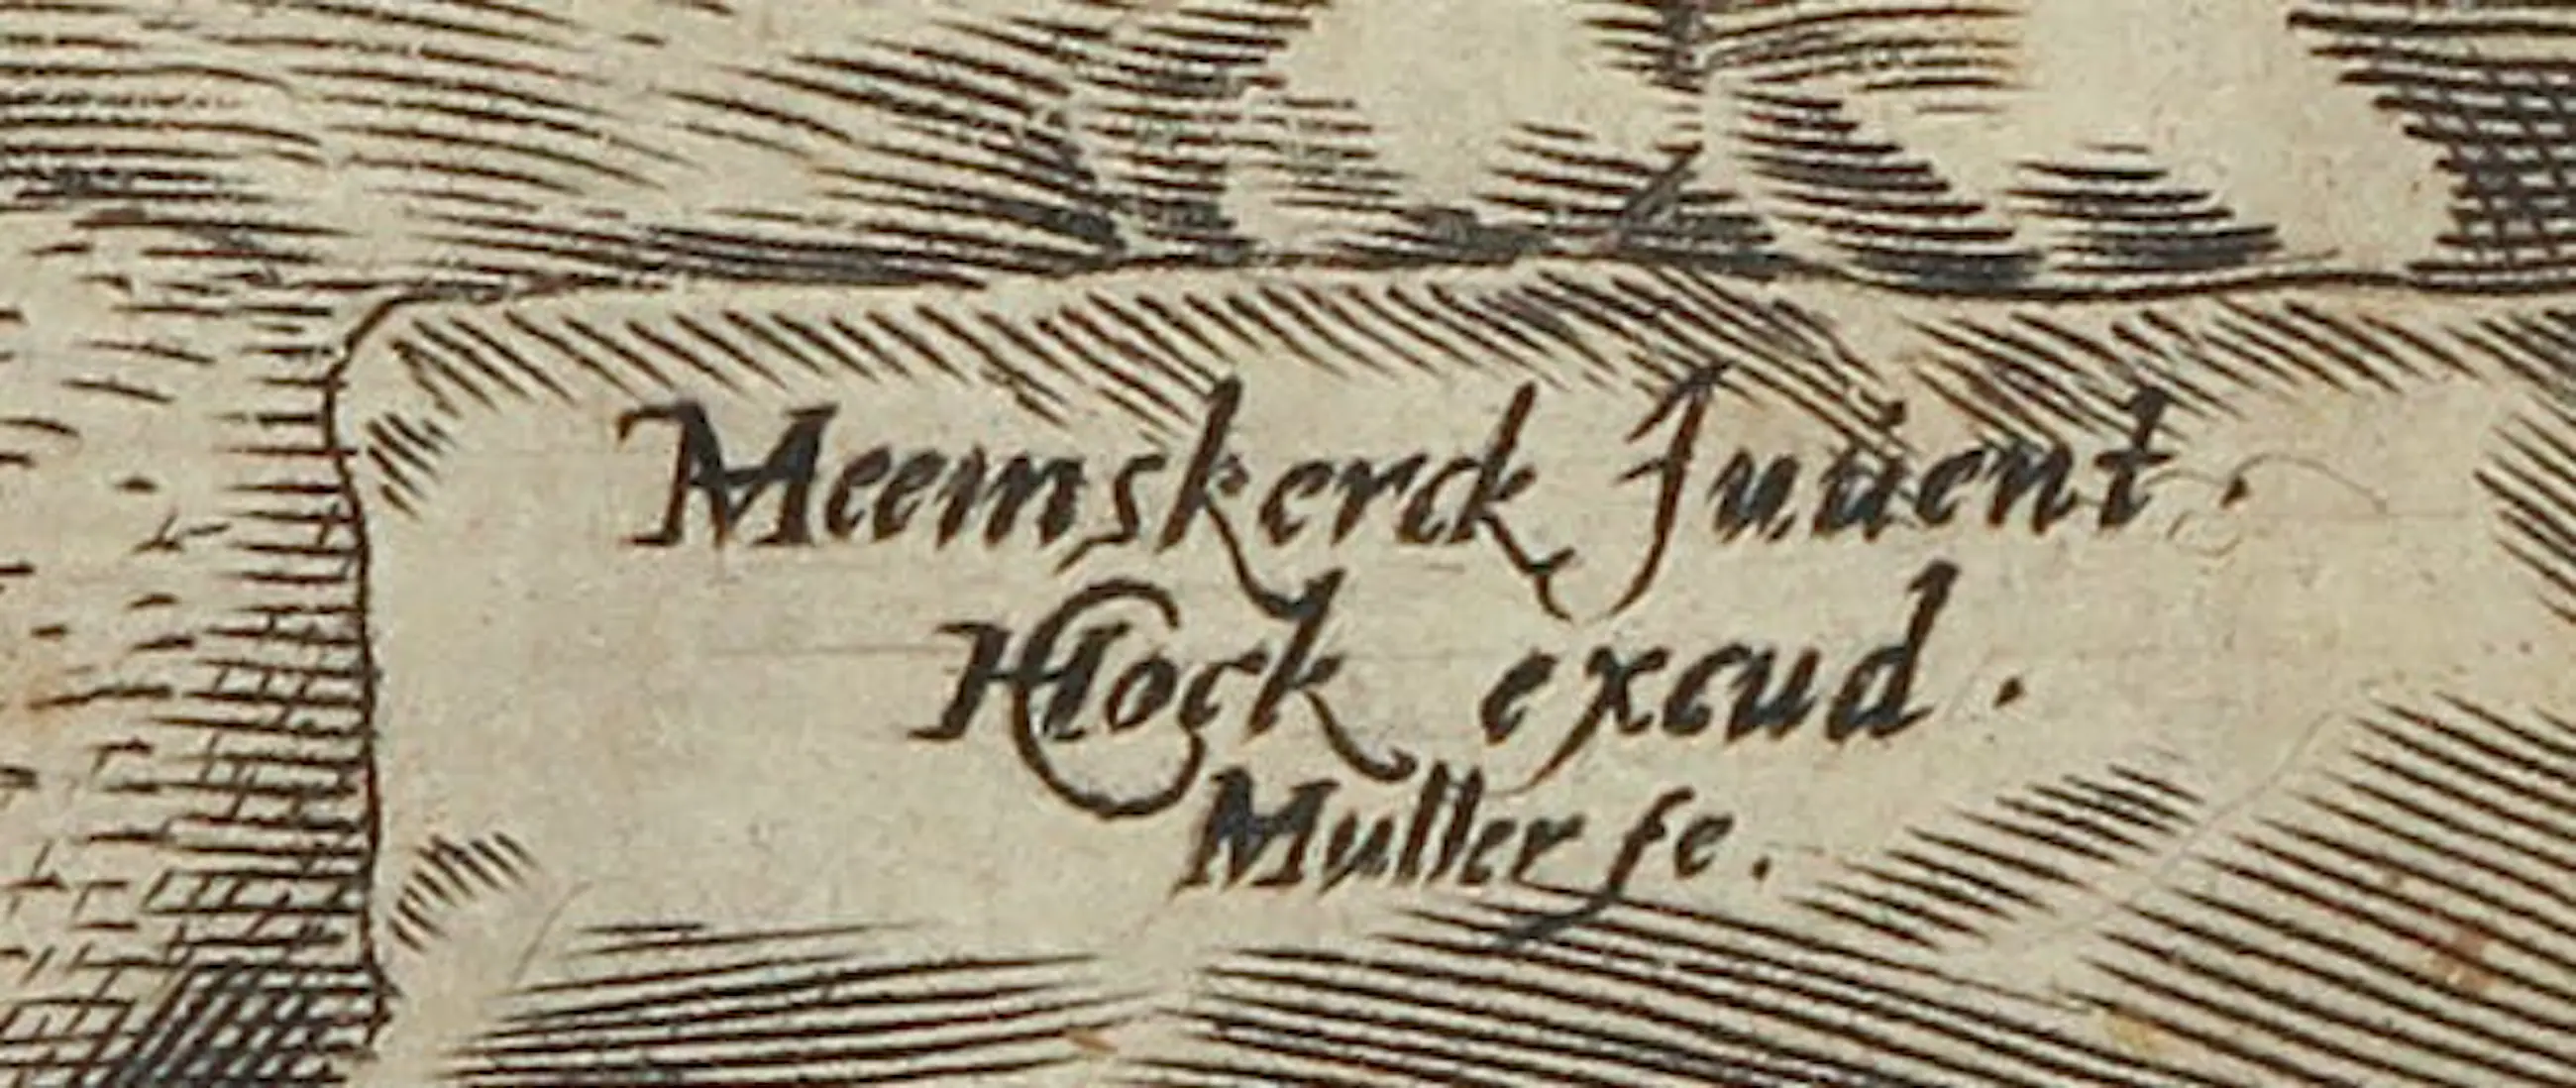 Meemskerck Inuent.
HCock excud.
Muller fe.